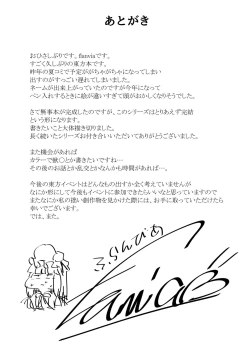 あとがき
おひさしぶりです。fanviaです。
すごく久しぶりの東方本です。
昨年の夏コミで予定ががちゃがちゃになってしまい
出すのがすっごい遅れてしまいました。
ネームが出来上がっていたのですが今年になって
ペン入れするときに絵が違いすぎて頭がおかしくなりそうでした。
さて無事本が完成したのですが、このシリーズはとりあえず完結
という形になります。
書きたいこと大体描き切りました。
長く続いたシリーズお付き合いいただいてありがとうございました。
また機会があれば
カラーで
とか書きたいですね…
その後のお話とか乱交とかなんかも時間があれば…。
今後の東方イベントはどんなもの出すか全く考えていませんが
なにか形にして今後もイベントに参加できたらいいなと思っていますので
またなにか私の拙い創作物を見かけた際には、お手に取っていただけたら
幸いでございます。
では、また。
ふらんぴあ